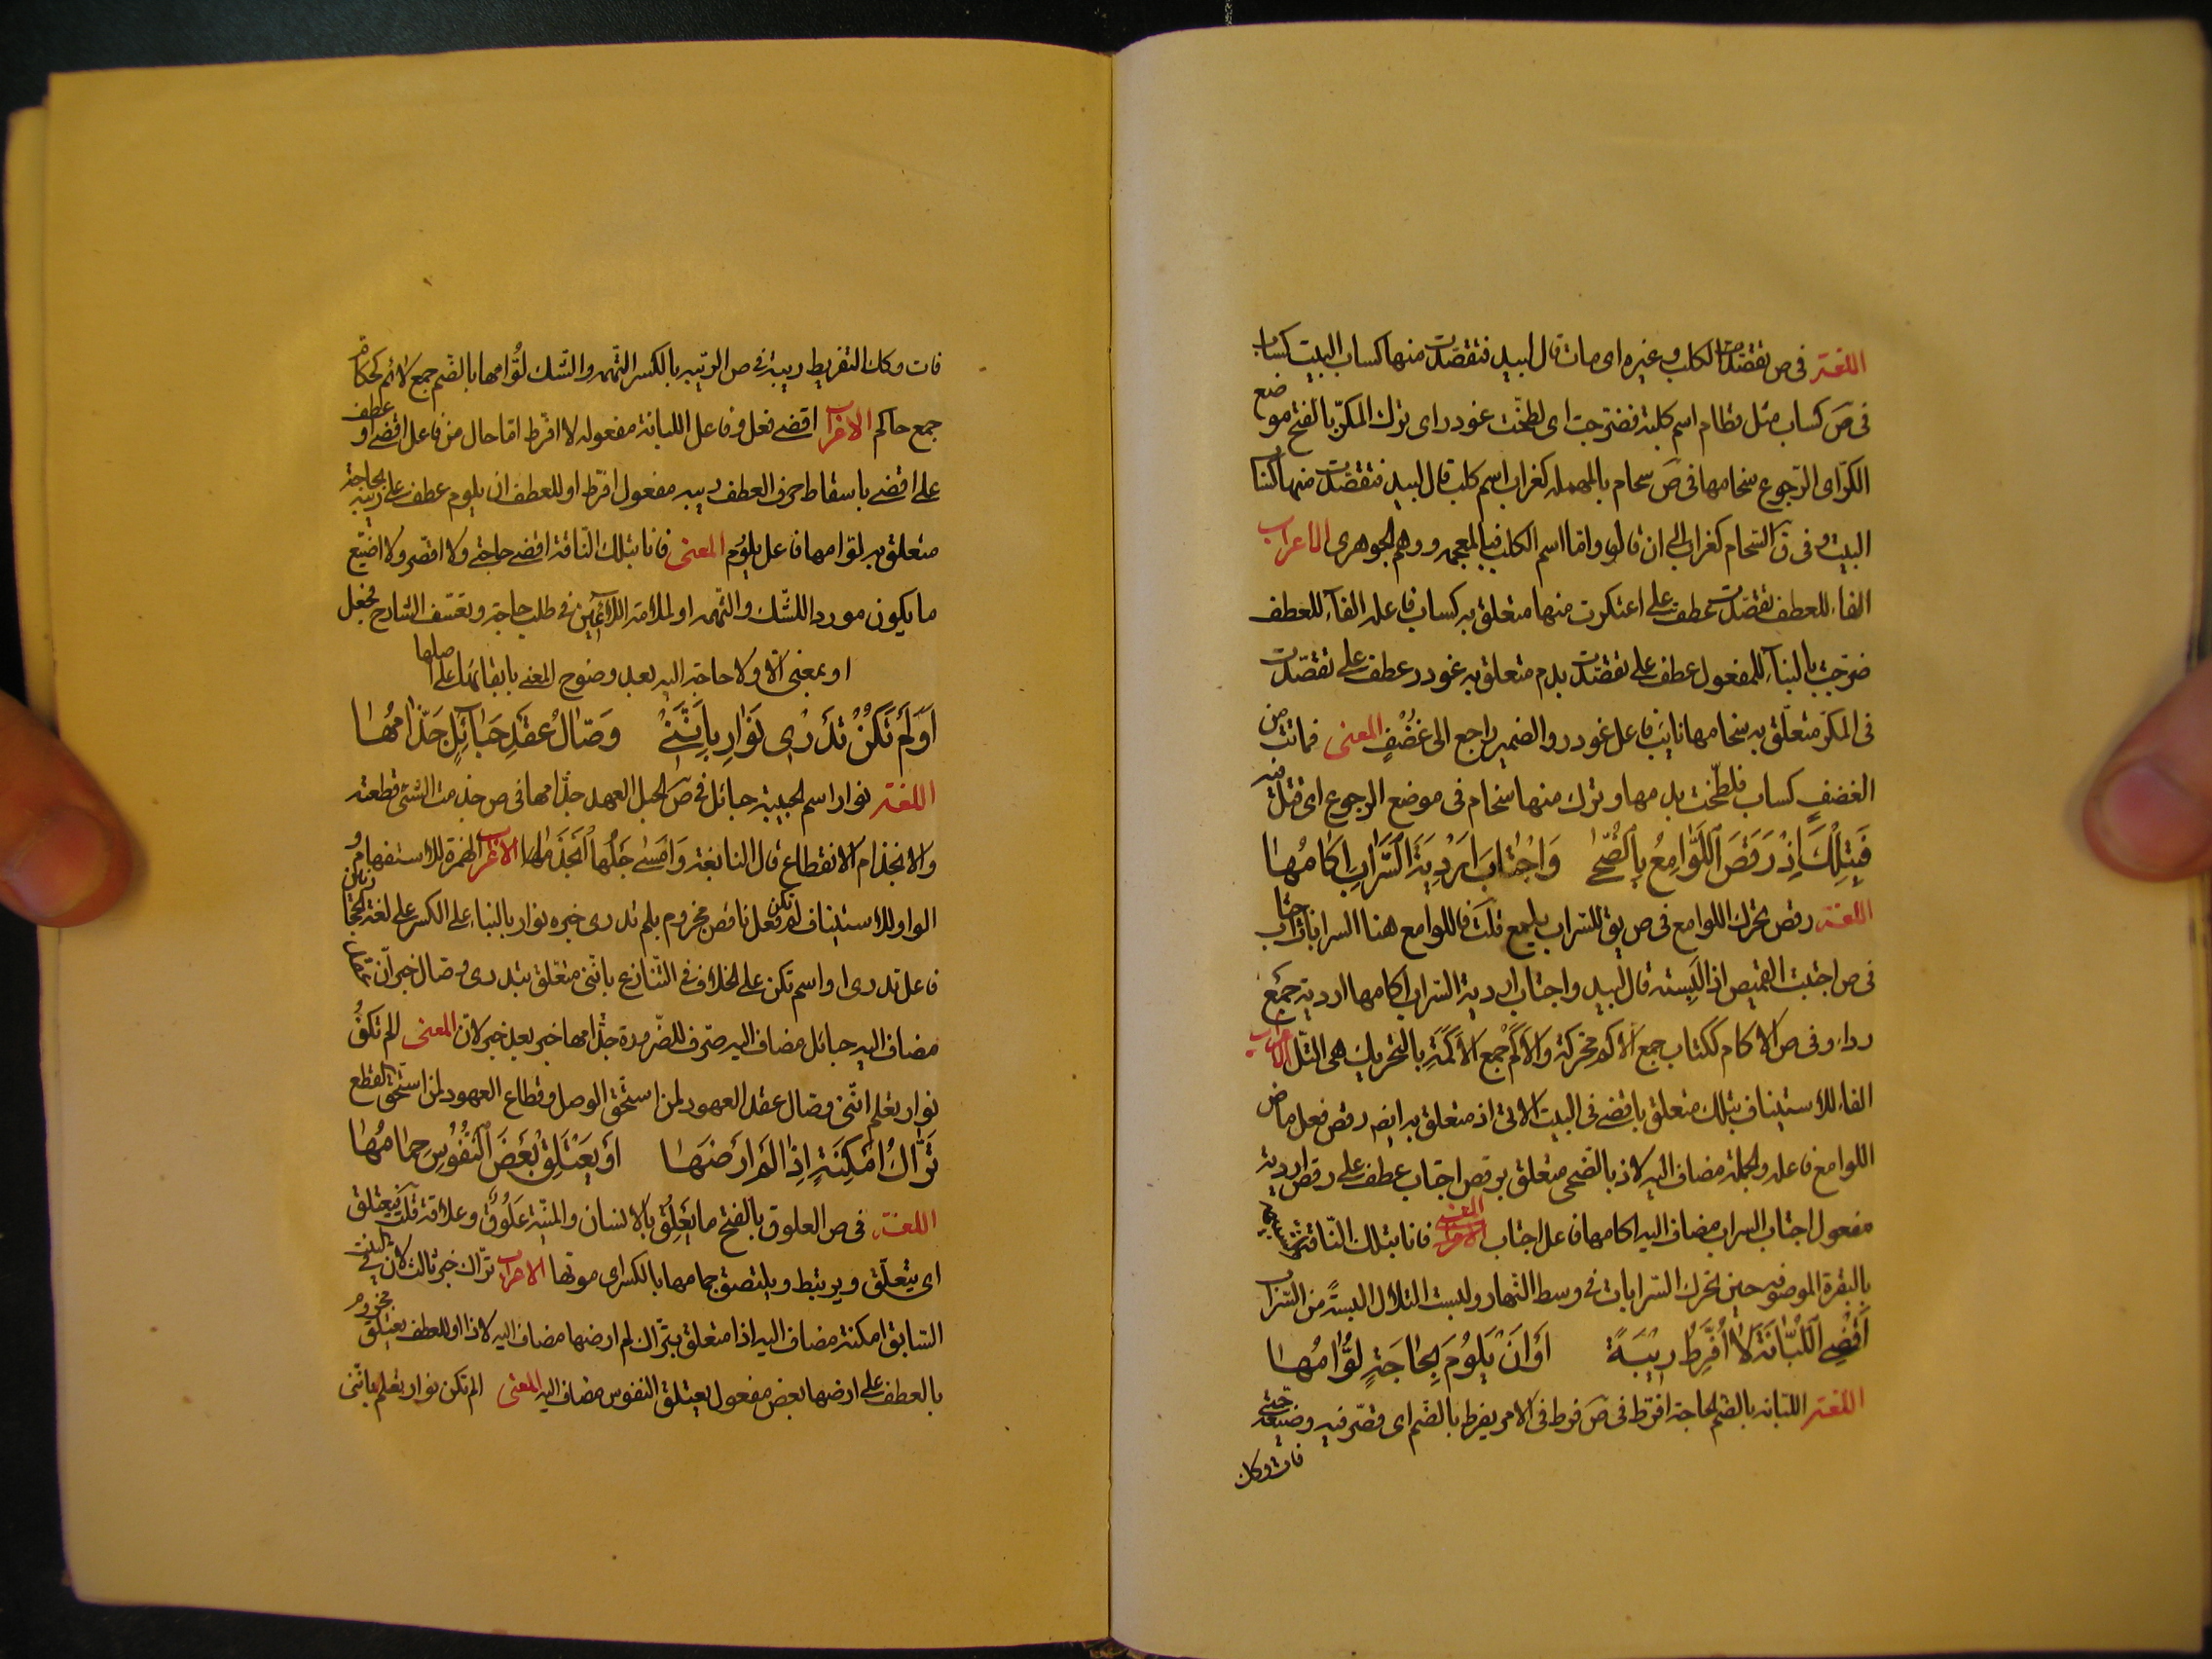 اللغة في ص تقصدت الكلب وغيره اى مات قال لبيد فتقصدت منها كساب البيت كساب
في ص كساب مثل قطام اسم كلبة فضرجت اى لطخت غودر اى ترك المكرّ بالفتح موضع
الكرّ اى الرجوع سخامها في ص سحام بالمهملة كغراب اسم كلب قال لبيد فتقصدت منها كساب
البيت وفي ق السحام كغراب الى ان قال واما اسم الكلب فبالمعجمه ووهم الجوهرى الاعراب
الفاء للعطف تقصدت عطف على اعتكرت منها متعلق به كساب فاعله الفاء للعطف
ضرّجت بالبناء للمفعول عطف على تقصدت بدم متعلق به غودر عطف على تقصّدت
في المكرّ متعلّق به سخامها نايب فاعل غودر والضمير راجع الى غُضْفٍ المعنى فماتت من
الغضف كساب فلطّخت بدمها وترك منها سخام في موضع الرجوع اى قتلة فيه
فَبِتِلْكَ اِذْ رَقَصَ اللَّوَامِعُ بِالضُّحٰى وَاجْتَابَ اَرْدِيَةَ السَّرَابِ اِكَامُهَا
اللغة رقص تحرك اللوامع في ص يق للسراب يلمع قلت فاللوامع هنا السرابات اجتاب
في ص اجتبت القميص اذا لبسته قال لبيد واجتاب اردية السراب اكامها اردية جمع
رداء وفي ص الاكام ككتاب جمع الاكم محركة والاكم جمع الاكمة بالتحريك هى التل الاعراب
الفاء للاستيناف بتلك متعلق باقضى في البيت الاتى اذ متعلق به ايضه رقص فعل ماض
اللوامع فاعله والجملة مضاف اليه لاذ بالضحى متعلق برقص اجتاب عطف على رقص اردية
مفعول اجتاب السراب مضاف اليه اكامها فاعل اجتاب المعنى فانا بتلك النّاقة
بالبقرة الموصوفه حين تحرك السرابات في وسط النهار ولبست التلال البسةً من السّراب
اَقْضِى اللُّبَانَةَ لَا اُفَرِّطُ رِيْبَةً اَوْ اَنْ يَلُوْمَ بِحَاجَةٍ لُوَّامُهَا
اللغة اللبانه بالضم الحاجة افرّط في ص فرط في الامر يفرط بالضم اى قصّر فيه وضيّعه حتى
فات وكك

فات وكك التفريط ريبة في ص الريبه بالكسر التّهمه والشك لوّامها بالضّم جمع لائم كحكام
جمع حاكم الاعراب اقضى فعل وفاعل اللبانة مفعوله لا افرّط امّا حال من فاعل اقضى او عطف
على اقضى باسقاط حرف العطف ريبه مفعول افرّط او للعطف ان يلوم عطف على ريبه بحاجة
متعلق به لوّامها فاعل يلوم المعنى فانا بتلك النّاقة اقضى حاجتى ولا اقصر ولا اضيّع
ما يكون مورد اللشّك والتّهمه او لملامة اللائمين في طلب حاجة وتعسف الشارح فجعل
او بمعنى الّا ولا حاجة اليه بعد وضوح المعنى بابقائها على اصلها
اَوَلَمْ تَكُنْ تَدْرِى نَوَارِ بِاَنَّنِى وَصَّالُ عَقْدِ حَبَائِلٍ جَذَّامُهَا
اللغة نوار اسم الحبيبة حبائل في ص الحبل العهد جذّامها في ص جذمت الشئ قطعته
والانجذام الانقطاع قال النابغة وَامْسٰى حَبْلُهَا انجَذَمَا الاعراب الهمزة للاستفهام و
الواو للاستيناف لم تكن فعل ناقص مجزوم بلم تدرى خبره نوار بالبناء على الكسر على لغة الحجازيين
فاعل تدرى او اسم تكن على الخلاف في التّنازع باننى متعّلق بتدرى وصّال خبر انّ عقد
مضاف اليه حبائل مضاف اليه صرف للضّرورة جذّامها خبر بعد خبر لانّ المعنى الم تكن
نوار تعلم انّنى وصّال عقد العهود لمن استحق الوصل وقطاع العهود لمن استحق القطع
تَرَّاكُ اَمْكِنَةٍ اِذَا لَمْ اَرْضَهَا اَوْ يَعْتَلِقْ بَعْضَ النُّفُوْسِ حِمَامُهَا
اللغة في ص العلوق بالفتح ما يَعْلَقُ بالانسان والمنيّة عَلُوْقٌ وعلاقة قلت يعتلق
اى يتعلّق ويرتبط ويلتصق حمامها بالكسر اى موتها الاعراب ترّاك خبر ثالث لانّ في البيت
السابق امكنة مضاف اليه اذا متعلق بترّاك لم ارضها مضاف اليه لاذا او للعطف يعتلق مجزوم
بالعطف على ارضها بعض مفعول يعتلق النفوس مضاف اليه المعنى الم تكن نوار تعلم باننى